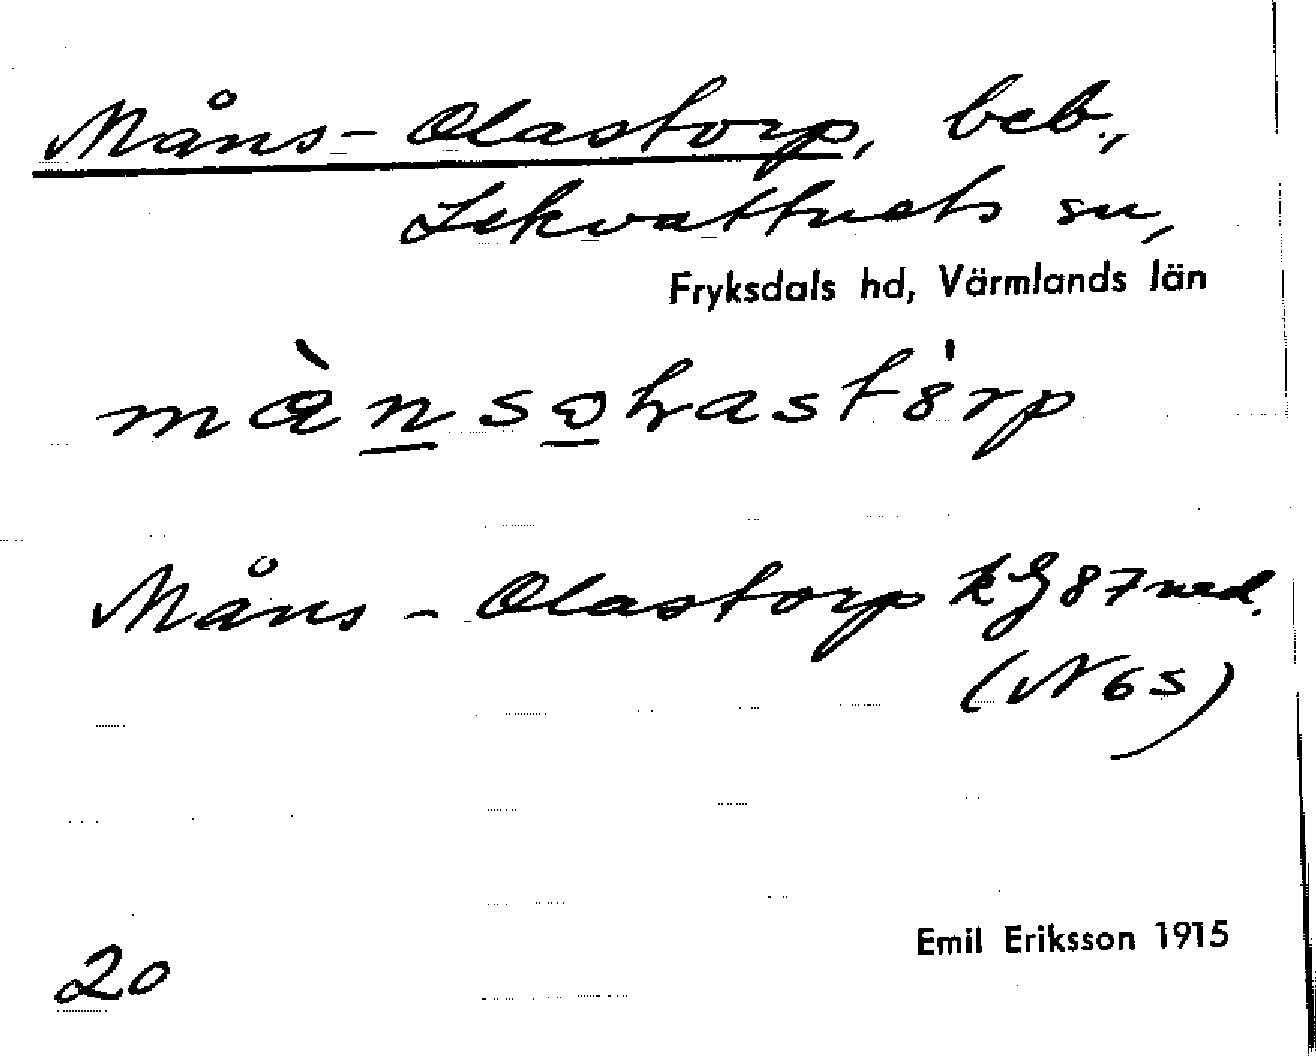 Måns-Olastorp, beb.,
Lekvattnets sn,
Fryksdals hd, Värmlands län
mànsoɽastórp
Måns-Olastorp kJ87ned.
(N6S)
20
Emil Eriksson 1915